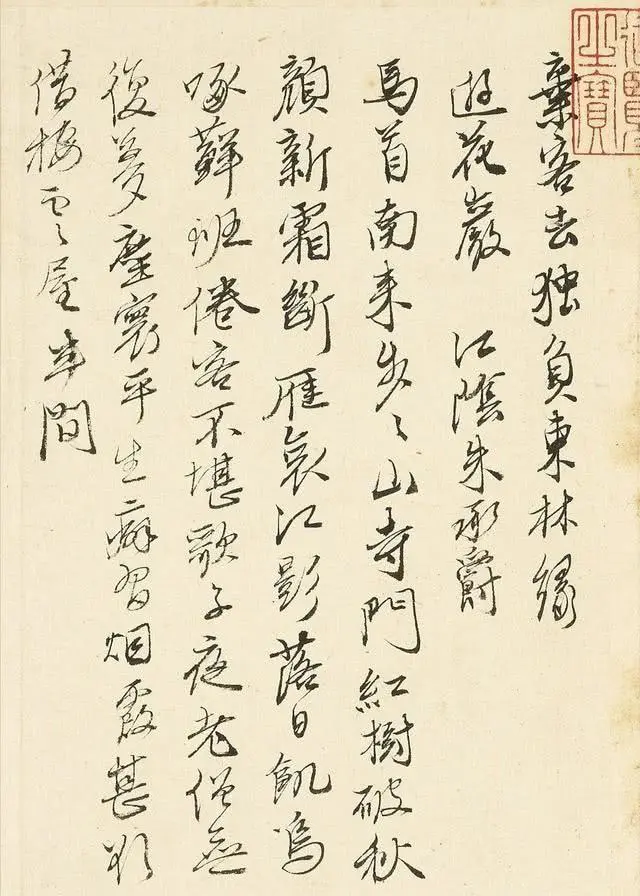 棄客去独負東林緣
遊花巖 江陰朱承爵
馬首南来步々山寺門紅樹破秋
顏新霜斷雁哀江影落日飢烏
啄蘚班倦客不堪歌子夜老僧無
復夢塵寰平生癖習烟霞甚欲
借棲雲屋半間